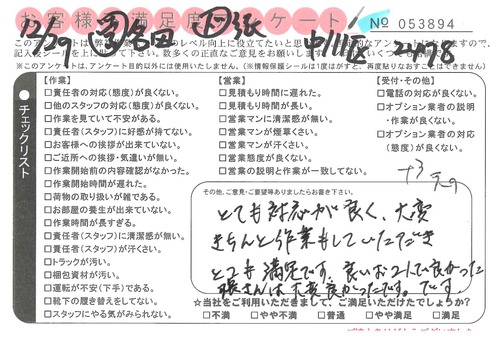 お客様満足度アンケート
№ 053894
12/29
中川区
※このアンケートは、アンケート目的以外には使用いたしません。(情報保護シールは1度はがすと、再度貼りなおすことはできません)
チェックリスト
【作業】
□責任者の対応(態度)が良くない。
□他のスタッフの対応(態度)が良くない。
□作業を見ていて不安がある。
□責任者(スタッフ)に好感が持てない。
□お客様への挨拶が出来ていない。
□ご近所への挨拶・気遣いが無い。
□作業開始前の内容確認がなかった。
□作業開始時間が遅れた。
□荷物の取り扱いが雑である。
□お部屋の養生が出来ていない。
□作業時間が長すぎる。
□責任者(スタッフ)に清潔感が無い。
□責任者(スタッフ)が汗くさい。
□トラックが汚い。
□梱包資材が汚い。
□運転が不安(下手)である。
□靴下の履き替えをしてない。
□スタッフにやる気がみられない。
【営業】
□見積もり時間に遅れた。
□見積もり時間が長い。
□営業マンに清潔感が無い。
□営業マンが煙草くさい。
□営業マンが汗くさい。
□営業態度が良くない。
□営業の説明と作業が一致してない。
【受付・その他】
□電話の対応が良くない。
□オプション業者の説明
・作業が良くない。
□オプション業者の対応
(態度)が良くない。
その他、ご意見・ご要望等ありましたらお書き下さい。
とても対応が良く、大変
きちんと作業もしていただき
とても満足です。
☆当社をご利用いただきまして、ご満足いただけたでしょうか?
□不満 □やや不満 □普通 □やや満足 □満足